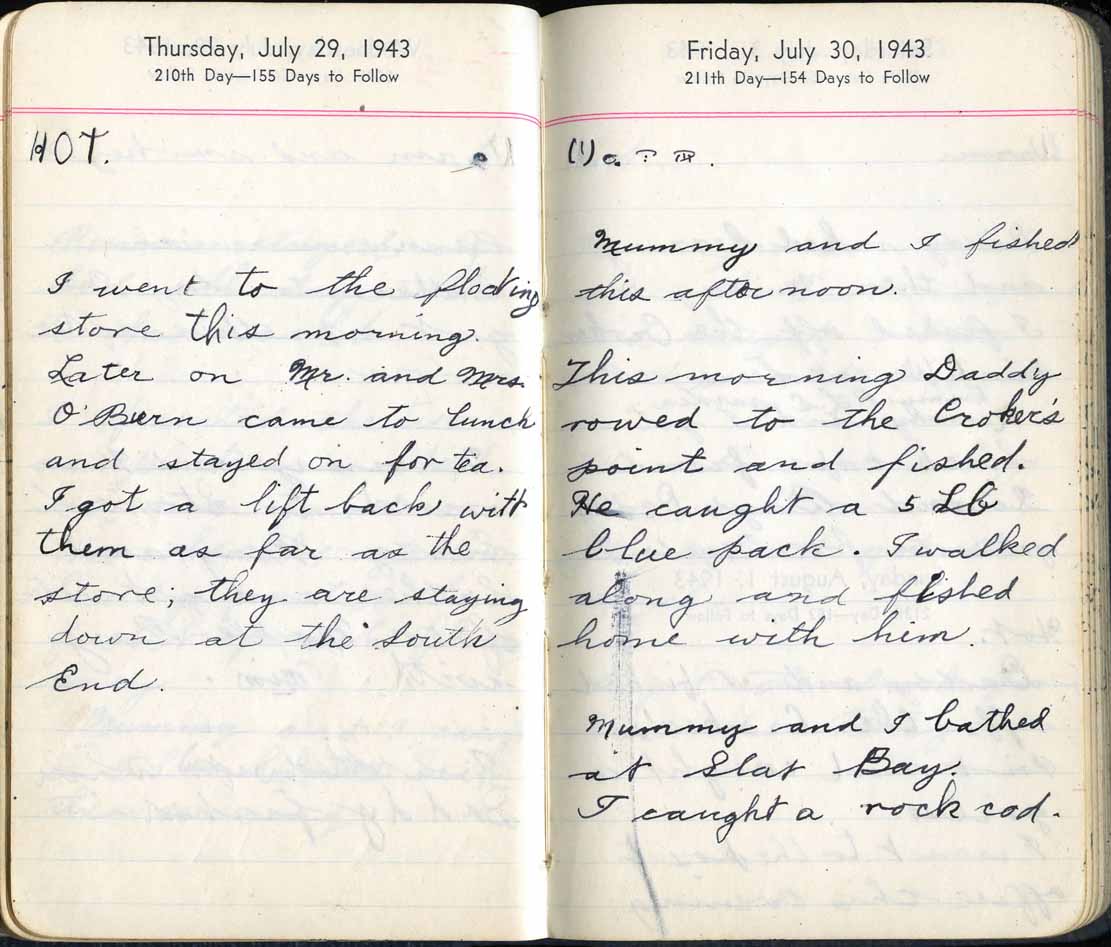 Thursday, July 29, 1943
210th Day—155 Days to Follow
HOT.
I went to the floating
store this morning.
Later on Mr. and Mrs.
O'Bern came to lunch
and stayed on for tea.
I got a lift back with
them as far as the
store; they are staying
down at the South
End.
Friday, July 30, 1943
211th Day—154 Days to Follow
Mummy and I fished
this afternoon.
This morning Daddy
rowed to the Croker's
point and fished.
He caught a 5 Lb
blue pack. I walked
along and fished
home with him.
Mummy and I bathed
at Slat Bay.
I caught a rock cod.